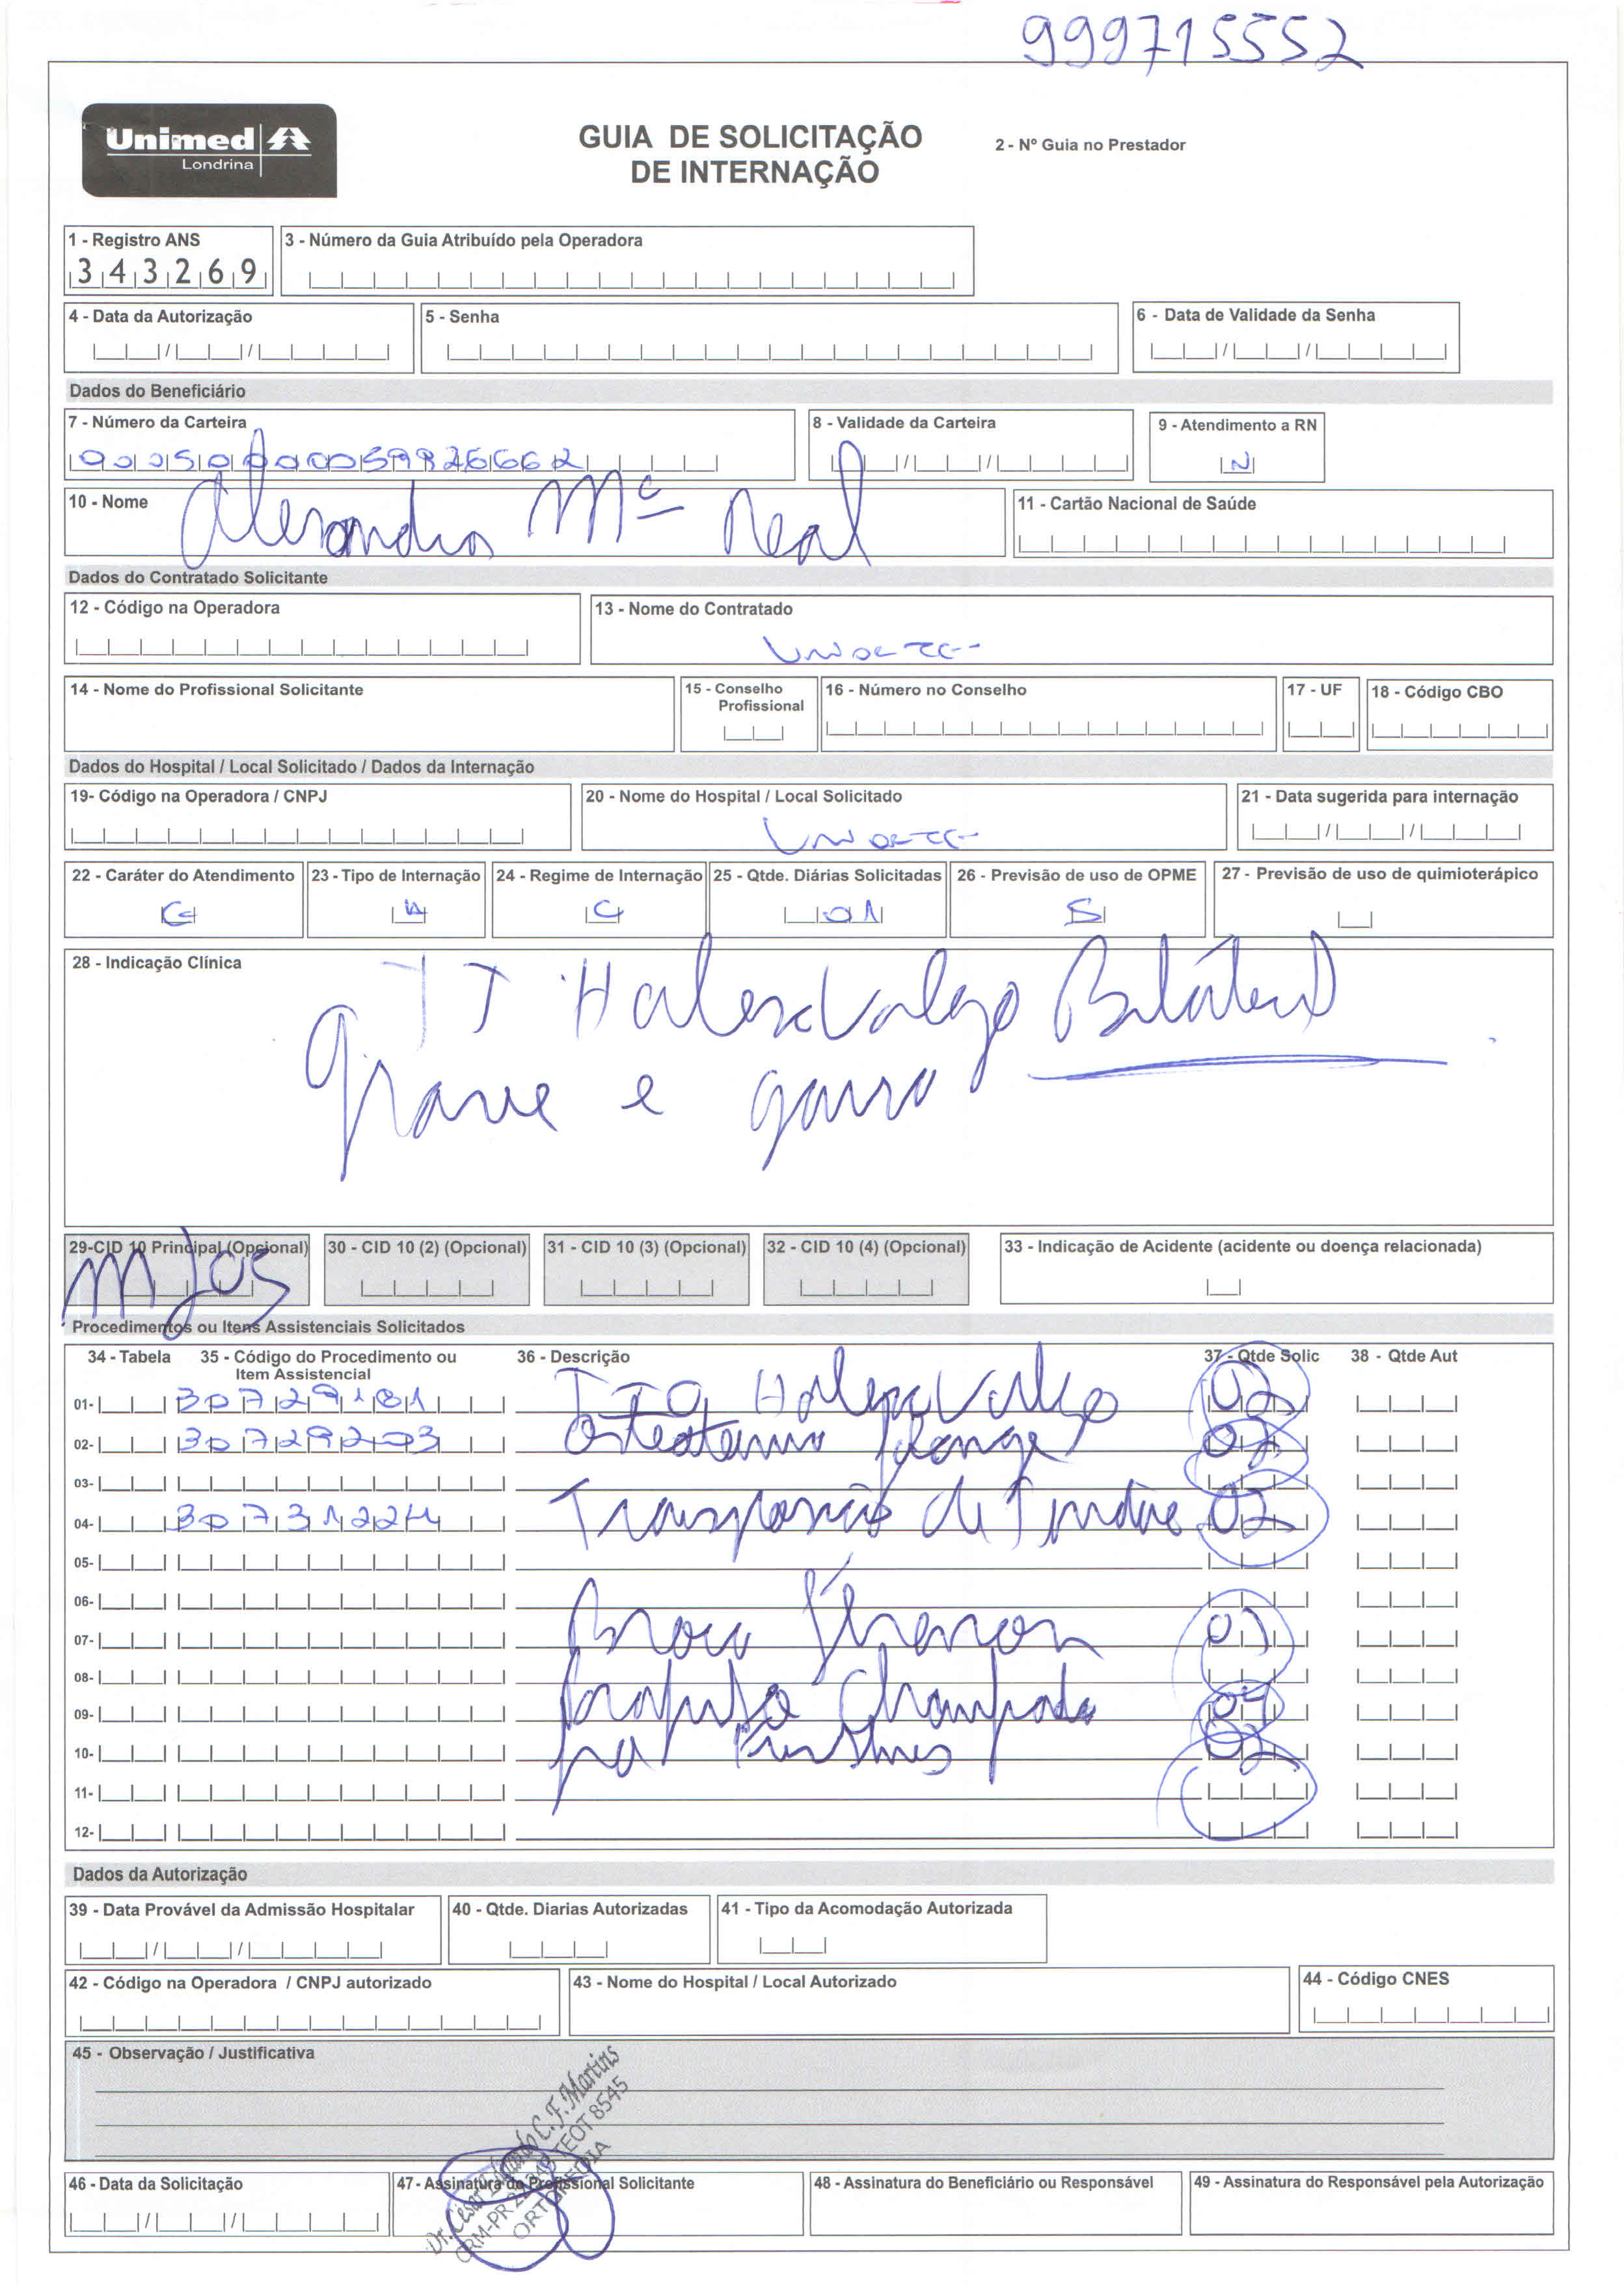 999715552
Unimed
Londrina
GUIA DE SOLICITAÇÃO
DE INTERNAÇÃO
2 - Nº Guia no Prestador
1 - Registro ANS
343269
3 - Número da Guia Atribuído pela Operadora
4 - Data da Autorização
5 - Senha
6 - Data de Validade da Senha
Dados do Beneficiário
7 - Número da Carteira
8 - Validade da Carteira
9 - Atendimento a RN
N
10 - Nome
Mª Real
11 - Cartão Nacional de Saúde
Dados do Contratado Solicitante
12 - Código na Operadora
13 - Nome do Contratado
14 - Nome do Profissional Solicitante
15 - Conselho Profissional
16 - Número no Conselho
17 - UF
18 - Código CBO
Dados do Hospital / Local Solicitado / Dados da Internação
19- Código na Operadora / CNPJ
20 - Nome do Hospital / Local Solicitado
21 - Data sugerida para internação
22 - Caráter do Atendimento
23 - Tipo de Internação
24 - Regime de Internação
25 - Qtde. Diárias Solicitadas
01
26 - Previsão de uso de OPME
S
27 - Previsão de uso de quimioterápico
28 - Indicação Clínica
Bilateral
grave e garra
29-CID 10 Principal (Opcional)
30 - CID 10 (2) (Opcional)
31 - CID 10 (3) (Opcional)
32 - CID 10 (4) (Opcional)
33 - Indicação de Acidente (acidente ou doença relacionada)
Procedimentos ou Itens Assistenciais Solicitados
34 - Tabela
35 - Código do Procedimento ou
Item Assistencial
36 - Descrição
37 - Qtde Solic
38 - Qtde Aut
01- 30729181 02
02- 30729203 02
03-
04- 30731224 Transposição de 02
05-
06-
07- 01
08-
09- 04
10- 02
11-
12-
Dados da Autorização
39 - Data Provável da Admissão Hospitalar
40 - Qtde. Diarias Autorizadas
41 - Tipo da Acomodação Autorizada
42 - Código na Operadora / CNPJ autorizado
43 - Nome do Hospital / Local Autorizado
44 - Código CNES
45 - Observação / Justificativa
46 - Data da Solicitação
47 - Assinatura do Profissional Solicitante
C. F. Martins
TEOT 8545
ORTOPEDIA
48 - Assinatura do Beneficiário ou Responsável
49 - Assinatura do Responsável pela Autorização